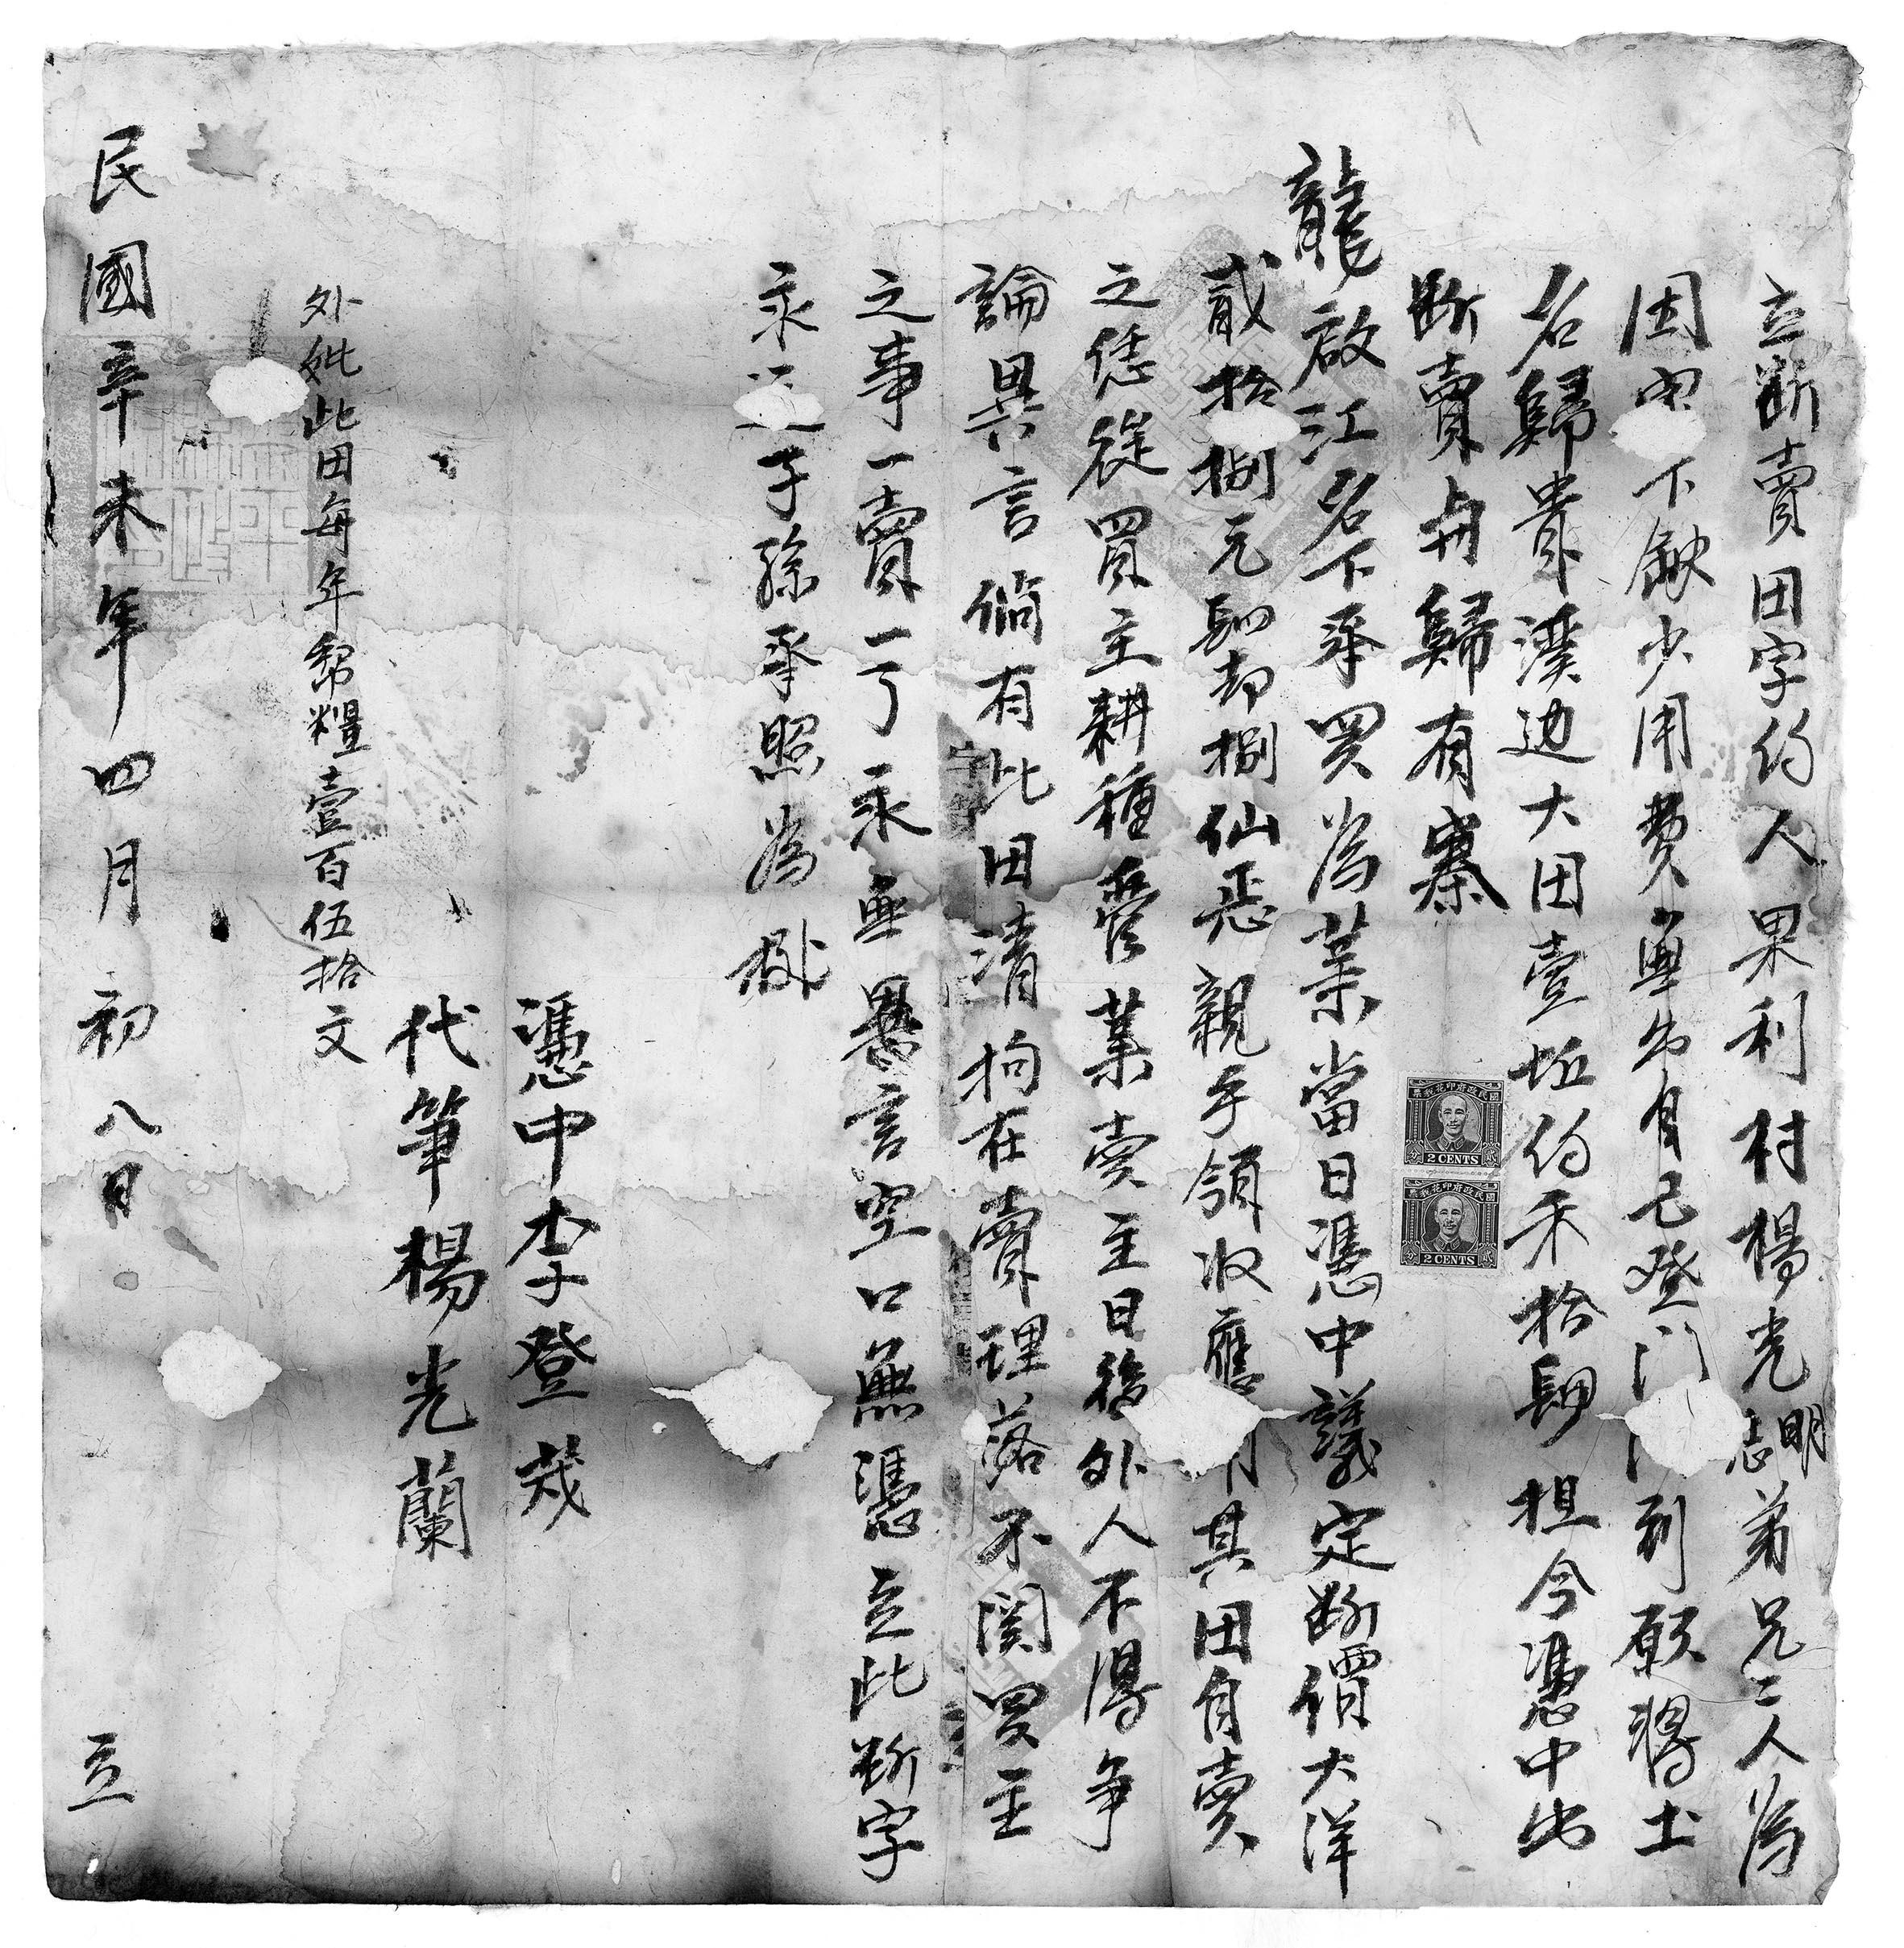 立断賣田字約人果利村楊光明志弟兄二人為
因 下缺少用費無出自己登門 到願將土
名歸貴濮边大田壹坵約禾拾肆担今憑中出
断賣与歸有寨
龍啟江名下承買為業當日憑中議定断價大洋
貳拾捌元 捌仙 親手領收應 其田自賣
之恁從買主耕種管業賣主日後外人不得争
論異言倘有此田清拘在賣理落不関買主
之事一賣一了永無異言空口無憑立此断字
永 子孫承照為據
憑中李登茂
代筆楊光蘭
外批此田每年幫糧壹百伍拾文
民國辛未年四月初八日 立
國民政府印花稅票
2 CENTS
國民政府印花稅票
2 CENTS